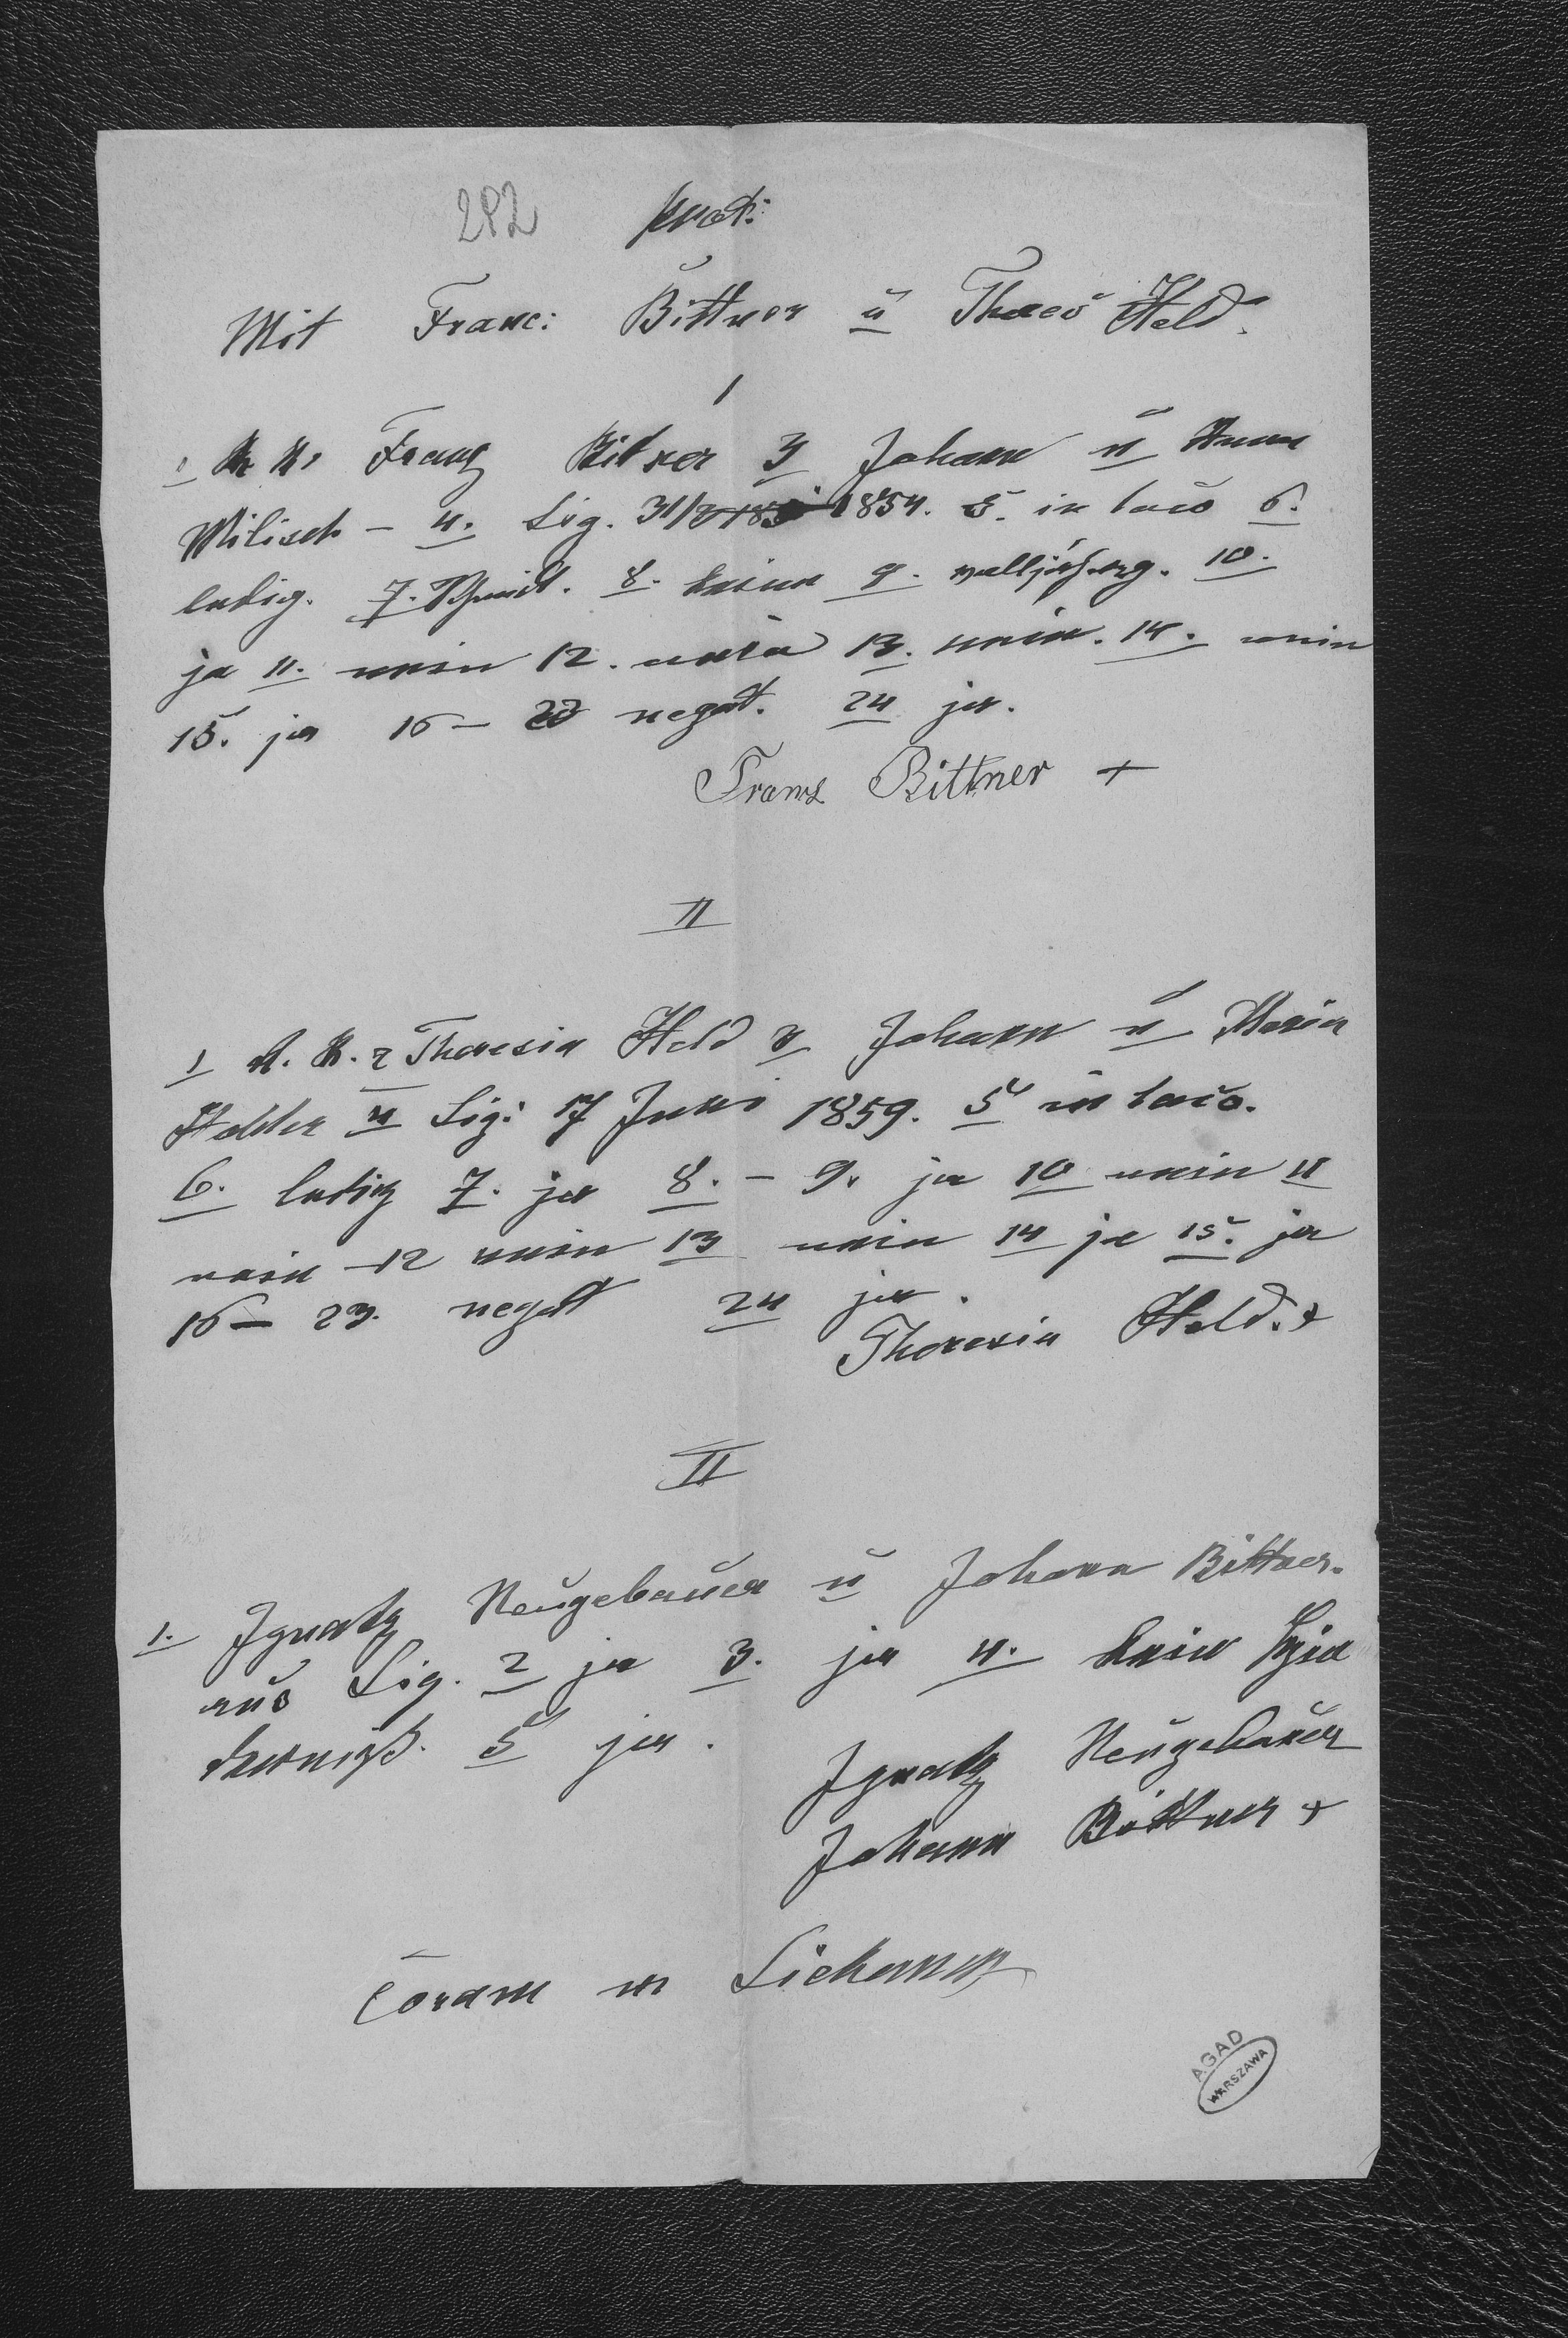 282 prot:
Mit Franc: Bittner ŭ Theres Held.
I
1 R. K. Franz Bitner 3 Johann ŭ Anna
Milisch – 4. Lig. 31/ 1854. 5. in loco 6.
ledig. 7. 8. keine 9. volljährig. 10.
ja 11. nein 12. nein 13. nein. 14. nein
15. ja 16 – 23 negat. 24 ja.
Franz Bittner +
II
1 R. K. 2 Theresia Held 3 Johann ŭ Maria
4 Lig: 17 Juni 1859. 5 in loco.
6. ledig 7. ja 8. – 9. ja 10 nein 11
nein 12 nein 13 nein 14 ja 15. ja
16 – 23. negat 24 ja.
Theresia Held. +
II
1. Ignatz Neŭgebaŭer ŭ Johann Bittner.
aŭs Lig. 2 ja 3. ja 4. kein Hin
derniß. 5 ja.
Ignatz Neŭgebaŭer
Johann Bittner +
Coram m
AGAD
WARSZAWA